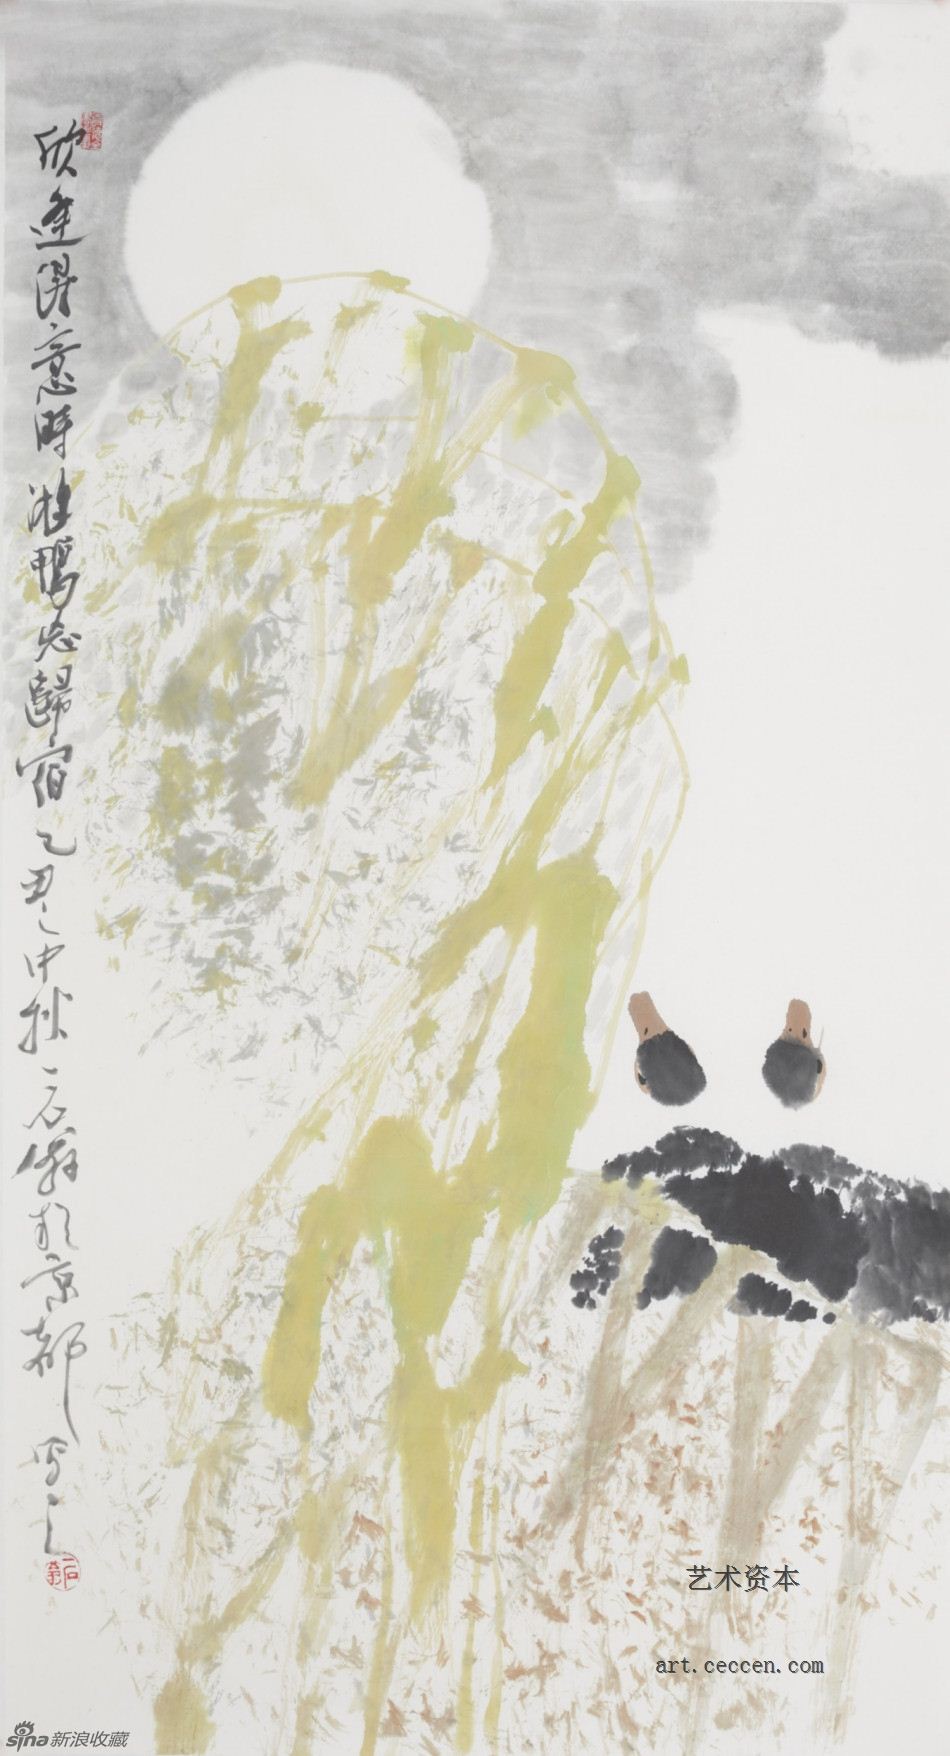 欣逢得意時鴨忘歸宿丑之中秋一石翁於京都寫之
艺术资本
art.ceccen.com
sina新浪收藏